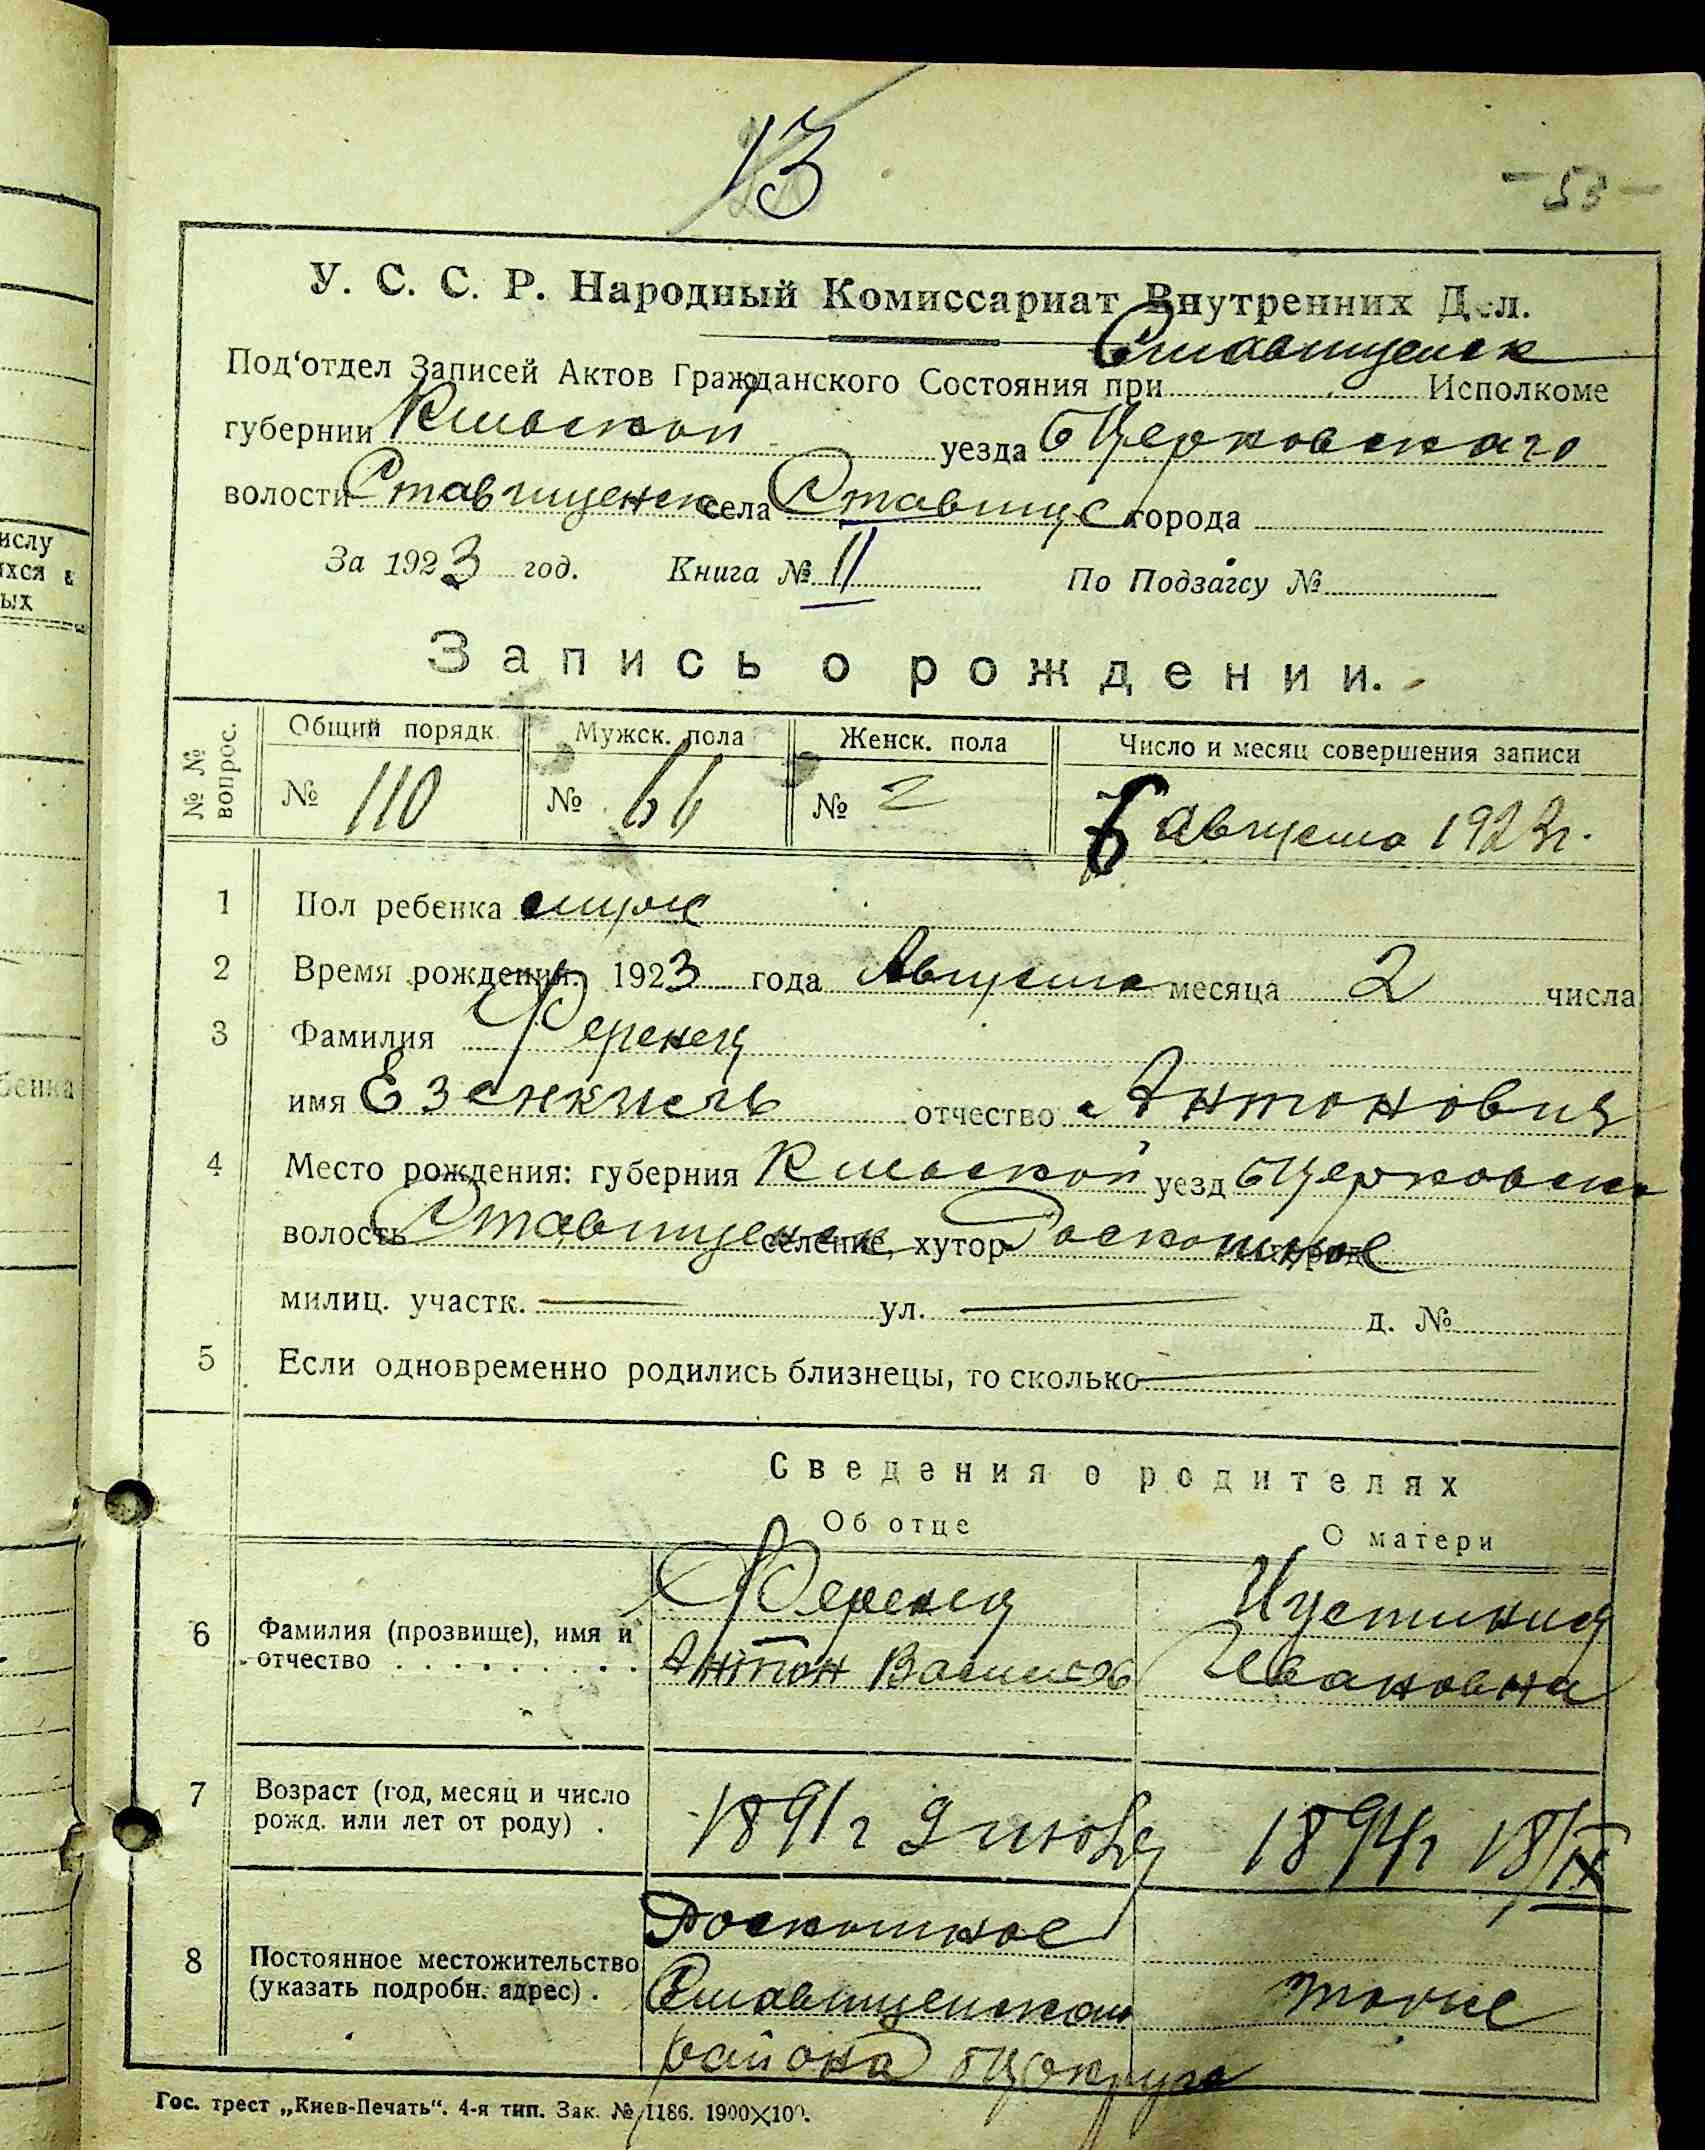 13
- 53 -
У. С. С. Р. Народный Комиссариат Внутренних Дел.
Под'отдел Записей Актов Гражданского Состояния при Ставищенск Исполкоме
губернии Киевской уезда бЦерковского
волости Ставищенск села Ставище города
За 1923 год. Книга № II По Подзагсу №
Запись о рождении.
№ № вопрос. Общий порядк Мужск. пола Женск. пола Число и месяц совершения записи
№ 110 № 66 № 2 6 августа 1923 г.
1 Пол ребенка муж
2 Время рождения: 1923 года Августа месяца 2 числа
3 Фамилия Ференец
имя Езекиель отчество Антонович
4 Место рождения: губерния Киевской уезд бЦерковск
волость Ставищенск селение, хутор Роскошное город
милиц. участк. — ул. — д. №
5 Если одновременно родились близнецы, то сколько —
Сведения о родителях
Об отце О матери
6 Фамилия (прозвище), имя и Ференец Иустиния
отчество . . . . . . . . . Антон Василь Ивановна
7 Возраст (год, месяц и число
рожд. или лет от роду) . 1891 г 1894 г 18/IX
8 Роскошное
Постоянное местожительство
(указать подробн. адрес) . Ставищенского тоже
района бЦ округа
Гос. трест „Киев-Печать“. 4-я тип. Зак. № 1186. 1900×100.
ислу
ихся в
ых
бенка